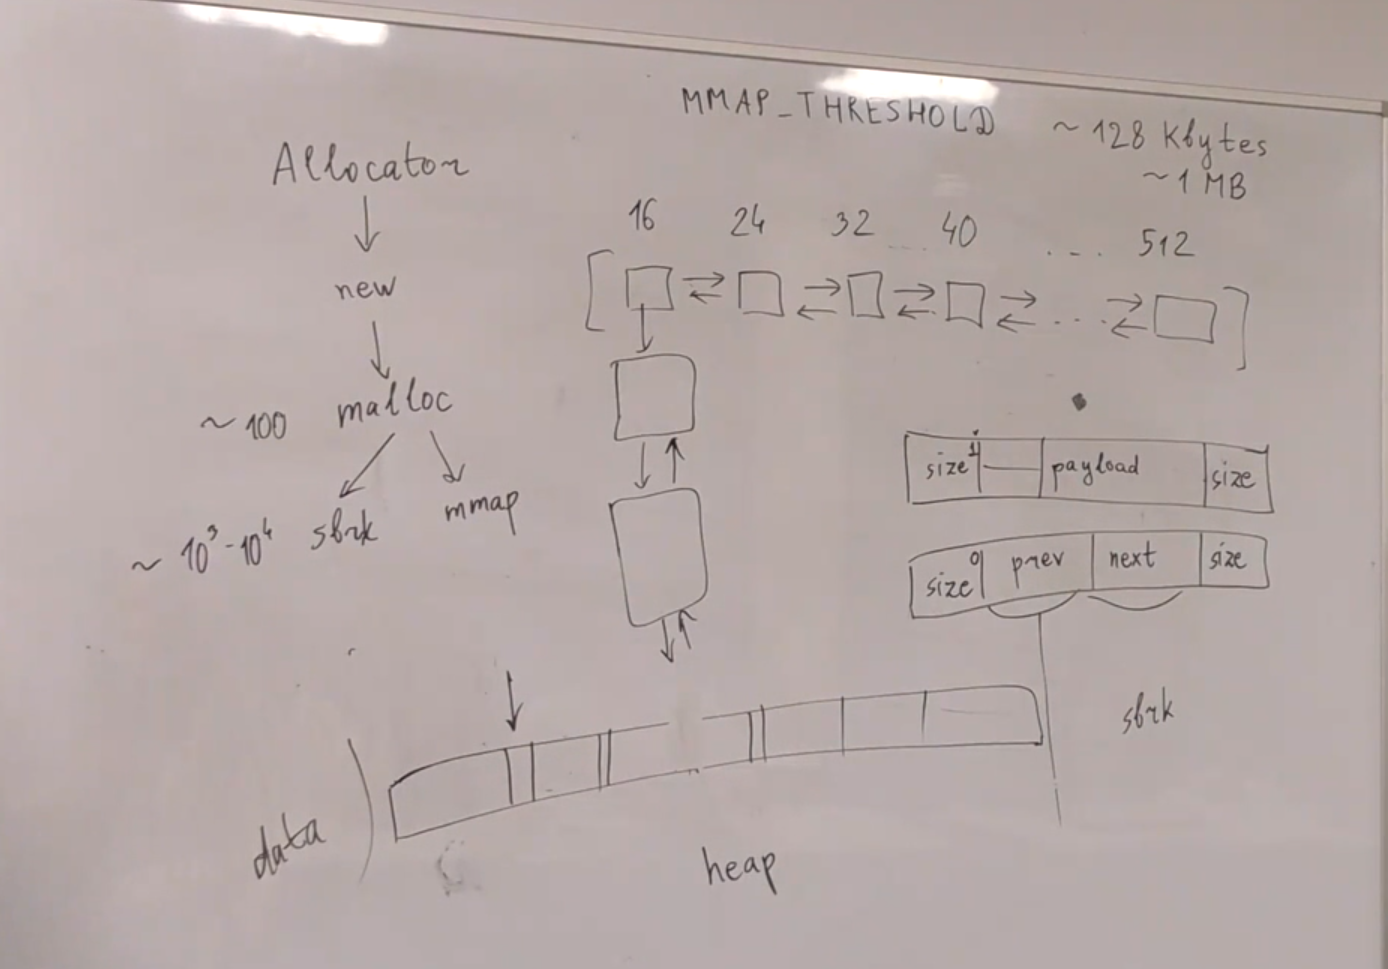 MMAP_THRESHOLD ~ 128 Kbytes
~ 1 MB
Allocator
new
~ 100 malloc
~ 10³-10⁴ sbrk mmap
16 24 32 .... 40 .... 512
...
size 1 payload size
size 0 prev next size
sbrk
data
heap